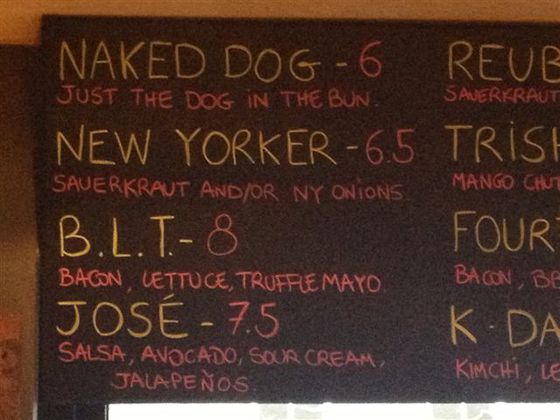 NAKED DOG - 6
JUST THE DOG IN THE BUN.
NEW YORKER - 6.5
SAUERKRAUT AND/OR NY ONIONS.
B.L.T. - 8
BACON, LETTUCE, TRUFFLE MAYO
JOSÉ - 7.5
SALSA, AVOCADO, SOUR CREAM,
JALAPEÑOS.
REUB
SAUERKRAUT
TRISH
MANGO CHUT
FOUR
BACON, B
K-DA
KIMCHI, LE